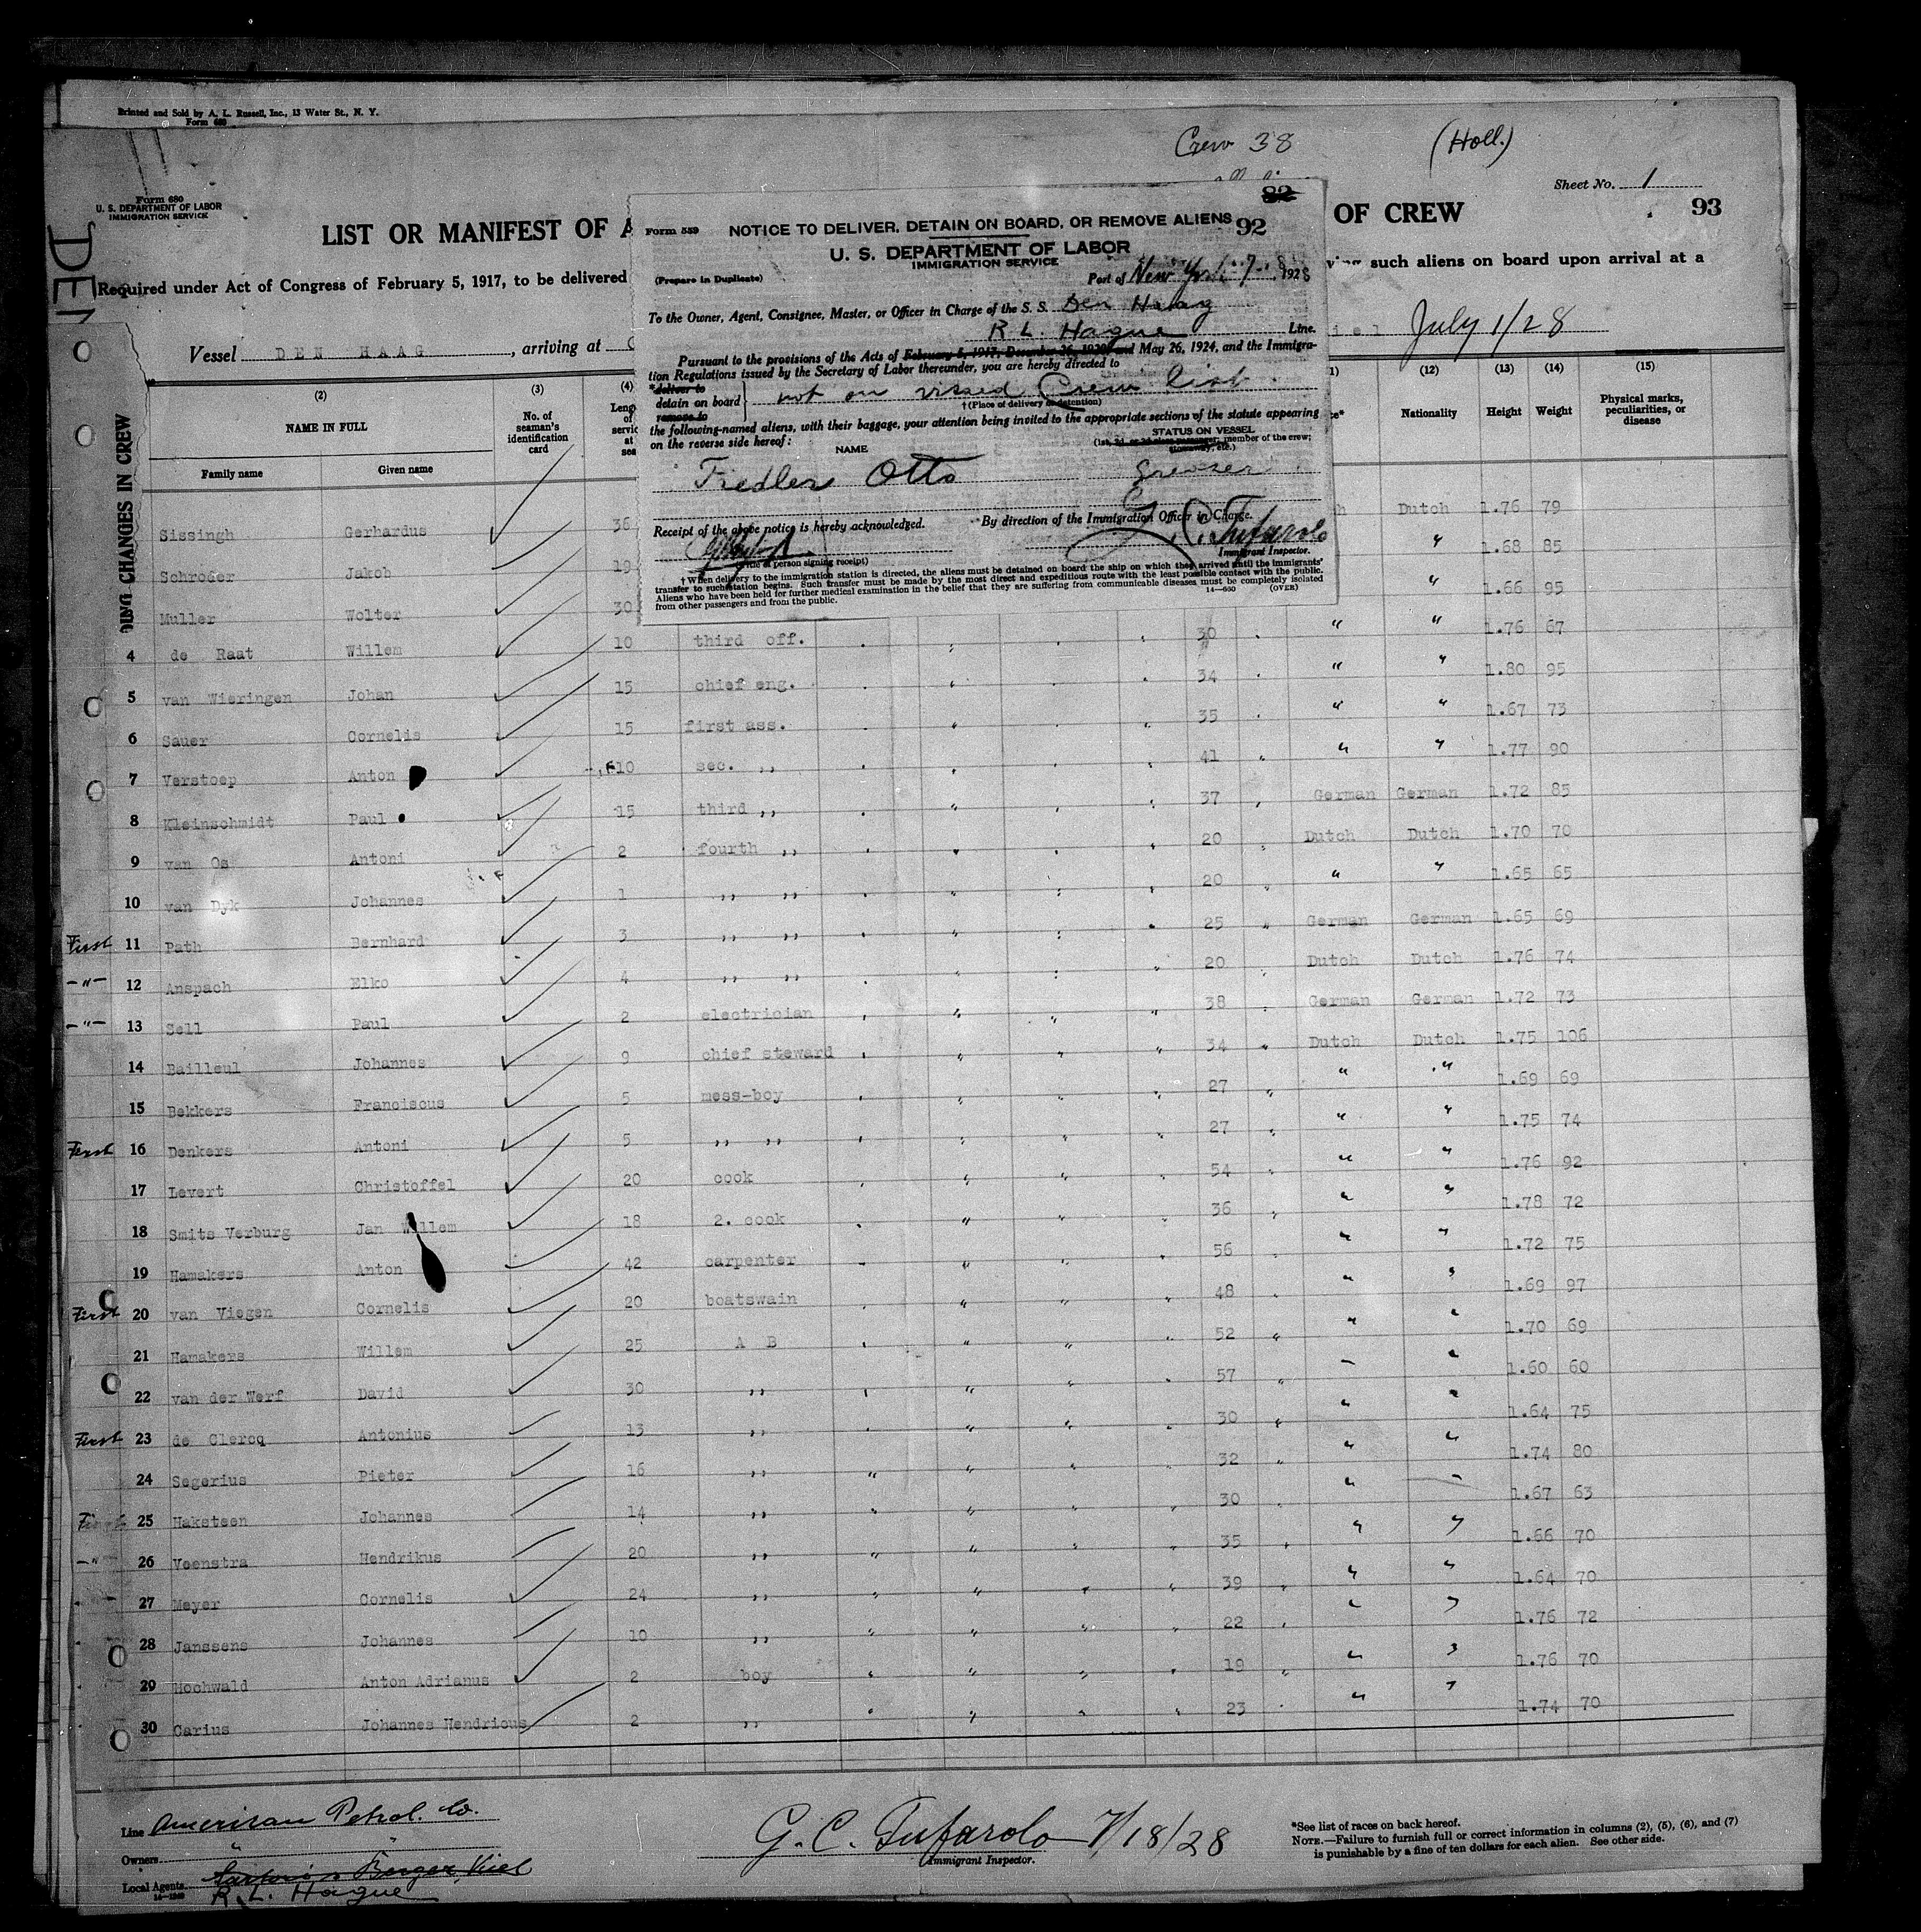 Printed and Sold by A. L. Russell, Inc., 13 Water St., N. Y.
Form 680
Crew 38
(Holl.)
Sheet No. 1
Form 680
U. S. DEPARTMENT OF LABOR
IMMIGRATION SERVICE
LIST OR MANIFEST OF A
OF CREW
93
Required under Act of Congress of February 5, 1917, to be delivered
such aliens on board upon arrival at a
Vessel DEN HAAG, arriving at
July 1/28
82
Form 559 NOTICE TO DELIVER, DETAIN ON BOARD, OR REMOVE ALIENS 92
U. S. DEPARTMENT OF LABOR
IMMIGRATION SERVICE
(Prepare in Duplicate)
Port of New York 7 1928
To the Owner, Agent, Consignee, Master, or Officer in Charge of the S. S. Den Haag
R L. Hague Line.
Pursuant to the provisions of the Acts of February 5, 1917, December 26, 1920, and May 26, 1924, and the Immigra-
tion Regulations issued by the Secretary of Labor thereunder, you are hereby directed to
*deliver to
detain on board not on vissed Crew list
remove to
†(Place of delivery or detention)
the following-named aliens, with their baggage, your attention being invited to the appropriate sections of the statute appearing
on the reverse side hereof:
NAME
STATUS ON VESSEL
(1st, 2d, or 3d class passenger; member of the crew;
stowaway, etc.)
Fiedler Otto greaser
Receipt of the above notice is hereby acknowledged. By direction of the Immigration Officer in Charge.
G. C. Tufarolo
(Title of person signing receipt)
Immigrant Inspector.
†When delivery to the immigration station is directed, the aliens must be detained on board the ship on which they arrived until the immigrants'
transfer to such station begins. Such transfer must be made by the most direct and expeditious route with the least possible contact with the public.
Aliens who have been held for further medical examination in the belief that they are suffering from communicable diseases must be completely isolated
from other passengers and from the public.
14—660 (OVER)
DUING CHANGES IN CREW
(2) (3) (4) (12) (13) (14) (15)
NAME IN FULL
Family name Given name
No. of seaman's identification card
Nationality Height Weight Physical marks, peculiarities, or disease
Sissingh Gerhardus 36 Dutch 1.76 79
Schroder Jakob 19 " 1.68 85
Muller Wolter 30 " 1.66 95
4 de Raat Willem 10 third off. 30 " " 1.76 67
5 van Wieringen Johan 15 chief eng. 34 " " 1.80 95
6 Sauer Cornelis 15 first ass. 35 " " 1.67 73
7 Verstoep Anton 10 sec. ,, 41 " " 1.77 90
8 Kleinschmidt Paul 15 third ,, 37 German German 1.72 85
9 van Os Antoni 2 fourth ,, 20 Dutch Dutch 1.70 70
10 van Dyk Johannes 1 ,, ,, 20 " " 1.65 65
First 11 Path Bernhard 3 ,, ,, 25 German German 1.65 69
-"- 12 Anspach Elko 4 ,, ,, 20 Dutch Dutch 1.76 74
-"- 13 Sell Paul 2 electrician 38 German German 1.72 73
14 Bailleul Johannes 9 chief steward 34 Dutch Dutch 1.75 106
15 Bekkers Franciscus 5 mess-boy 27 " " 1.69 69
First 16 Denkers Antoni 5 ,, ,, 27 " " 1.75 74
17 Levert Christoffel 20 cook 54 " " 1.76 92
18 Smits Verburg Jan Willem 18 2. cook 36 " " 1.78 72
19 Hamakers Anton 42 carpenter 56 " " 1.72 75
First 20 van Viegen Cornelis 20 boatswain 48 " " 1.69 97
21 Hamakers Willem 25 A B 52 " " 1.70 69
22 van der Werf David 30 ,, 57 " " 1.60 60
First 23 de Clercq Antonius 13 ,, 30 " " 1.64 75
24 Segerius Pieter 16 ,, 32 " " 1.74 80
First 25 Haksteen Johannes 14 ,, 30 " " 1.67 63
-" 26 Veenstra Hendrikus 20 ,, 35 " " 1.66 70
27 Meyer Cornelis 24 ,, 39 " " 1.64 70
28 Janssens Johannes 10 ,, 22 " " 1.76 72
29 Hochwald Anton Adrianus 2 boy 19 " " 1.76 70
30 Carius Johannes Hendricus 2 ,, 23 " " 1.74 70
Line American Petrol. Co.
Owners "
Local Agents Sartori & Berger, Kiel
R. L. Hague
14—1240
G. C. Tufarolo 7/18/28
Immigrant Inspector.
*See list of races on back hereof.
NOTE.—Failure to furnish full or correct information in columns (2), (5), (6), and (7)
is punishable by a fine of ten dollars for each alien. See other side.